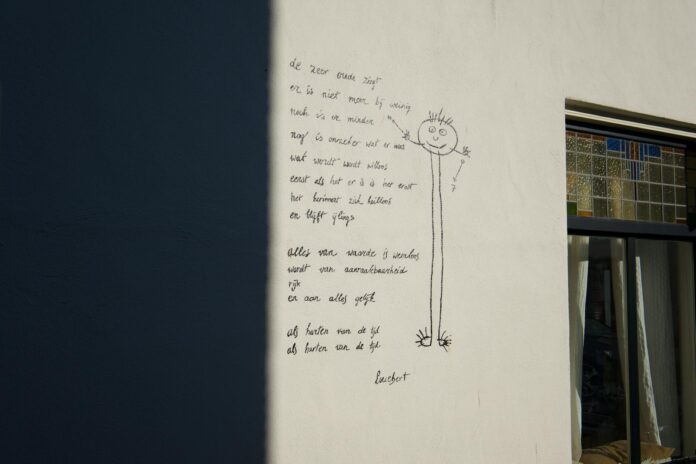 de zeer oude zingt
er is niet meer bij weinig
noch is er minder
nog is onzeker wat er was
wat wordt wordt willoos
eerst als het er is is het ernst
het herinnert zich heilloos
en blijft ijlings
alles van waarde is weerloos
wordt van aanraakbaarheid
rijk
en aan alles gelijk
als het hart van de tijd
als het hart van de tijd
lucebert